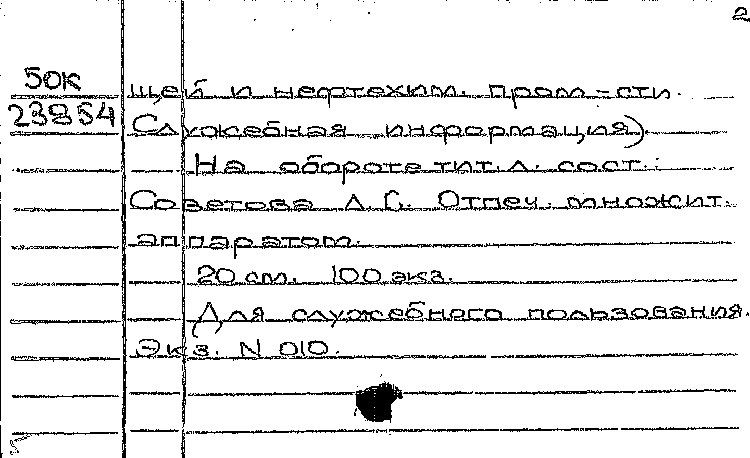 2
50К щей и нефтехим. пром-сти.
23854 Служебная информация).
На обороте тит. л. сост.:
Советова Л.С. Отпеч. множит.
аппаратом.
20 см. 100 экз.
Для служебного пользования.
Экз. N 010.